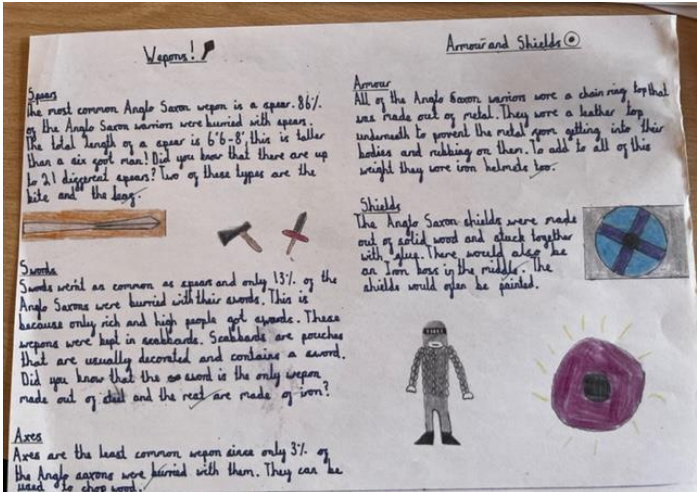 Wepons!
Spears
The most common Anglo Saxon wepon is a spear. 86%
of the Anglo Saxon warriors were burried with spears.
The total length of a spear is 6'6-8', this is taller
than a six foot man! Did you know that there are up
to 21 different spears? Two of these types are the
kite and the leaf.
Swords
Swords went as common as spears and only 13% of the
Anglo Saxons were burried with their swords. This is
because only rich and high people got swords. These
wepons were kept in scabbards. Scabbards are pouches
that are usually decorated and contains a sword.
Did you know that the sword is the only wepon
made out of steel and the rest are made of iron?
Axes
Axes are the least common wepon since only 3% of
the Anglo saxons were burried with them. They can be
used to chop wood.
Armour and Shields
Armour
All of the Anglo Saxon warriors wore a chain ring top that
was made out of metal. They wore a leather top
underneath to prevent the metal from getting into their
bodies and rubbing on them. To add to all of this
weight they wore iron helmets too.
Shields
The Anglo Saxon shields were made
out of solid wood and stuck together
with glue. There would also be
an Iron boss in the middle. The
shields would often be painted.